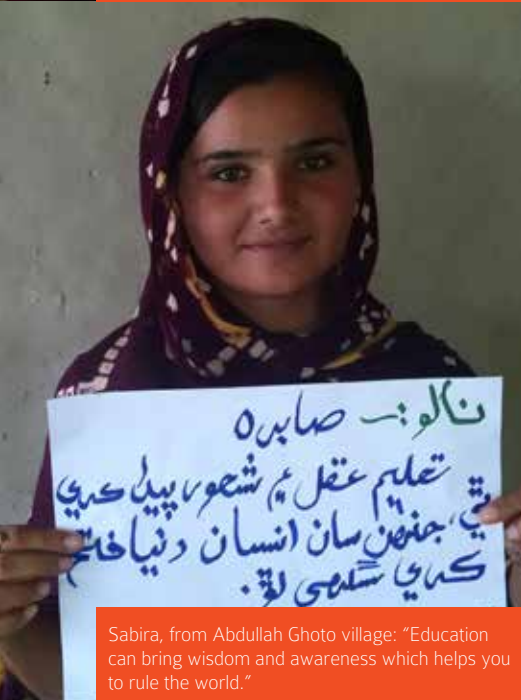 نالو :– صابره
تعليم عقل ۽ شعور پيدا ڪري
ٿي، جنهن سان انسان دنيا فتح
ڪري سگهي ٿو.
Sabira, from Abdullah Ghoto village: “Education
can bring wisdom and awareness which helps you
to rule the world.”